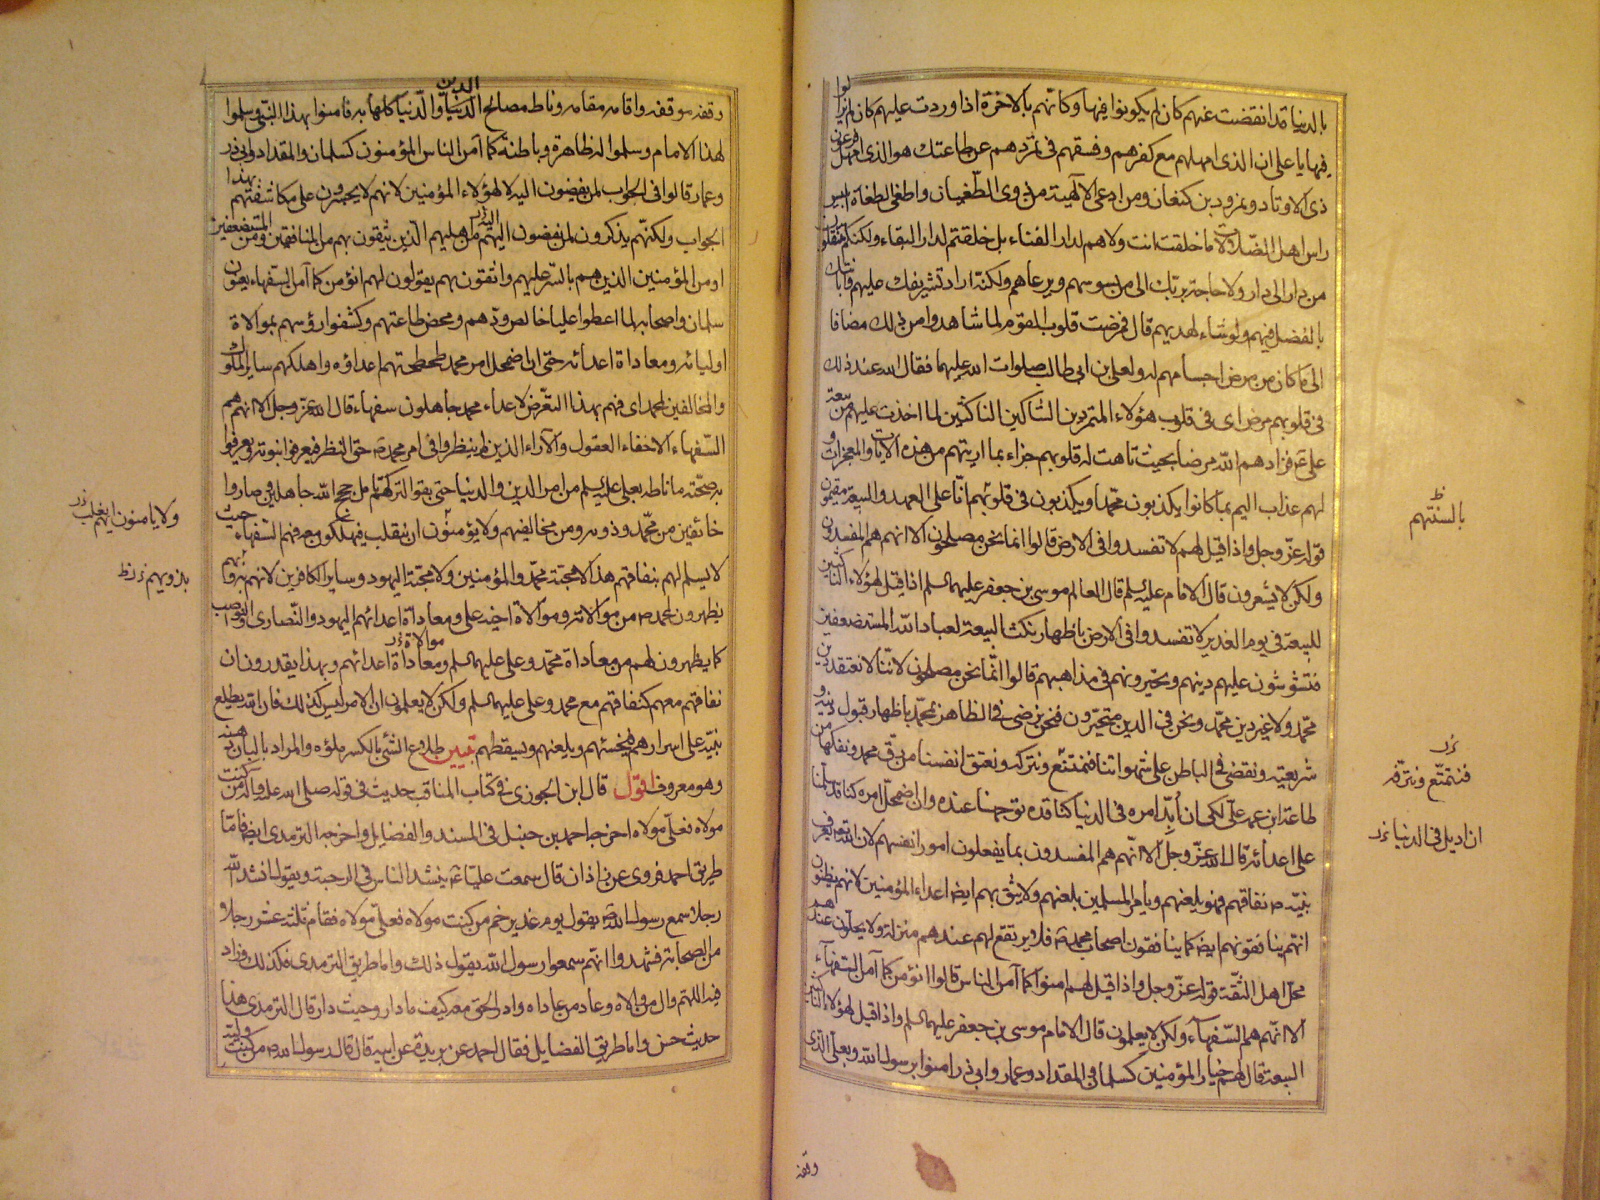 بالدنيا قد انقضت عنهم كان لم يكونوا فيها وكانهم بالاخرة اذا وردت عليهم كان لم يزالوا
فيها يا علي ان الذي امهلهم مع كفرهم وفسقهم في تمردهم عن طاعتك هو الذي امهل فرعون
ذي الاوتاد ونمرود بن كنعان ومن ادعى الالهية من ذوي الطغيان واطغى الطغاة ابليس
راس اهل الضلالات ما خلقت انت ولا هم لدار الفناء بل خلقتم لدار البقاء ولكنكم تنقلون
من دار الى دار ولا حاجة بربك الى من يسوسهم ويرعاهم ولكنه اراد تشريفك عليهم وابانتك
بالفضل فيهم ولو شاء لهديهم قال فمرضت قلوب القوم لما شاهدوا من ذلك مضافا
الى ما كان من مرض اجسامهم له ولعلي بن ابي طالب صلوات الله عليهما فقال الله عند ذلك
في قلوبهم مرض اى في قلوب هؤلاء المتمردين الشاكين الناكثين لما اخذت عليهم من بيعة
علي ع فزادهم الله مرضا بحيث تاهت له قلوبهم جزاء بما اريتهم من هذه الايات والمعجزات و
لهم عذاب اليم بما كانوا يكذبون محمدا ويكذبون في قولهم انا على العهد والبيعة مقيمون
قوله عز وجل واذا قيل لهم لا تفسدوا في الارض قالوا انما نحن مصلحون الا انهم هم المفسدون
ولكن لا يشعرون قال الامام عليه السلم قال العالم موسى بن جعفر عليهما السلم اذا قيل لهؤلاء الناكثين
للبيعة في يوم الغدير لا تفسدوا في الارض باظهار نكث البيعة لعباد الله المستضعفين
فتشوشون عليهم دينهم وتحيرونهم في مذاهبهم قالوا انما نحن مصلحون لاننا لا نعتقد دين
محمد ولا غير دين محمد ونحن في الدين متحيرون فنحن نرضى في الظاهر بمحمد باظهار قبول دينه و
شريعته ونقضى في الباطن على شهواتنا فنتمتع ونتركه ونعتق انفسنا من رق محمد ونفكها من
طاعة ابن عمه علي لكي ان أبد امره في الدنيا كنا قد توجهنا عنده وان اضمحل امره كنا قد سلمنا
على اعدائه قال الله عز وجل الا انهم هم المفسدون بما يفعلون امور انفسهم لان الله تع يعرف
نبيه ص نفاقهم فهو يلعنهم ويأمر المسلمين بلعنهم ولا يثق بهم ايضا اعداء المؤمنين لانهم يظنون
انهم ينافقونهم ايضا كما ينافقون اصحاب محمد ص فلا يرتفع لهم عندهم منزلة ولا يحلون عندهم
محل اهل الثقة قوله عز وجل واذا قيل لهم امنوا كما آمن الناس قالوا انؤمن كما آمن السفهاء
الا انهم هم السفهاء ولكن لا يعلمون قال الامام موسى بن جعفر عليهما السلم واذا قيل لهؤلاء الناكثين
البيعة قال لهم خيار المؤمنين كسلمان والمقداد وعمار وابي ذر امنوا برسول الله وبعلي الذي
وقفه
بالسنتهم
فنتمتع ونترفه
ان اديل في الدنيا
وقفه موقفه واقامه مقامه وناط مصالح الدين والدنيا كلها به فامنوا بهذا النبي وسلموا
لهذا الامام وسلموا له ظاهرة وباطنة كما آمن الناس المؤمنون كسلمان والمقداد وابي ذر
وعمار قالوا في الجواب لمن يفضون اليه لا لهؤلاء المؤمنين لانهم لا يجسرون على مكاشفتهم بهذا
الجواب ولكنهم يذكرون لمن يفضون اليهم من اهليهم الذين يثقون بهم من المنافقين ومن المستضعفين
او من المؤمنين الذين هم بالستر عليهم واثقون بهم يقولون لهم انؤمن كما آمن السفهاء يعنون
سلمان واصحابه لما اعطوا عليا خالص ودهم ومحض طاعتهم وكشفوا رؤسهم بموالاة
اوليائه ومعاداة اعدائه حتى ان اضمحل امر محمد طحطحتهم اعداؤه واهلكهم ساير الملوك
والمخالفين لمحمد اى فهم بهذا التعرض لاعداء محمد جاهلون سفهاء قال الله عز وجل الا انهم هم
السفهاء الاخفاء العقول والآراء الذين لم ينظروا في امر محمد ص حق النظر فيعرفوا نبوته ويعرفوا
به صحة ما ناطه بعلي عليه السلم من امر الدين والدنيا حتى بقوا لتركهم تامل حجج الله جاهلين وصاروا
خائفين من محمد وذويه ومن مخالفيهم ولا يؤمنون ان ينقلب فيهلكوا معه فهم السفهاء حيث
لا يسلم لهم بنفاقهم هذا لا محبة محمد والمؤمنين ولا محبة اليهود وساير الكافرين لانهم
يظهرون لمحمد ص من موالاته وموالاة اخيه علي ومعاداة اعدائهم اليهود والنصارى والنواصب
كما يظهرون لهم من معاداة محمد وعلي عليهما السلم وموالاة اعدائهم وبهذا يقدرون ان
نفاقهم معهم كنفاقهم مع محمد وعلي عليهما السلم ولكن لا يعلمون ان الامر ليس كذلك فان الله يطلع
نبيه على اسرارهم فيخسئهم ويلعنهم ويسقطهم تبيين طلاع الشئ بالكسر ملؤه والمراد باللبان
وهو معروف اقول قال ابن الجوزي في كتاب المناقب حديث في قوله صلى الله عليه واله من كنت
مولاه فعلي مولاه اخرجه احمد بن حنبل في المسند والفضايل واخرجه الترمدي ايضا فاما
طريق احمد فروى عن زاذان قال سمعت عليا ع ينشد الناس في الرحبة ويقول انشد الله
رجلا سمع رسول الله ص يقول يوم غدير خم من كنت مولاه فعلي مولاه فقام ثلثة عشر رجلا
من الصحابة فشهدوا انهم سمعوا رسول الله يقول ذلك واما طريق الترمدي فكذلك وزاد
فيه اللهم وال من والاه وعاد من عاداه وادر الحق معه كيف ما دار وحيث دار قال الترمدي هذا
حديث حسن واما طريق الفضايل فقال احمد عن بريدة عن ابيه قال قال رسول الله ص من كنت وليه
ولا يامنون ايهم يغلب